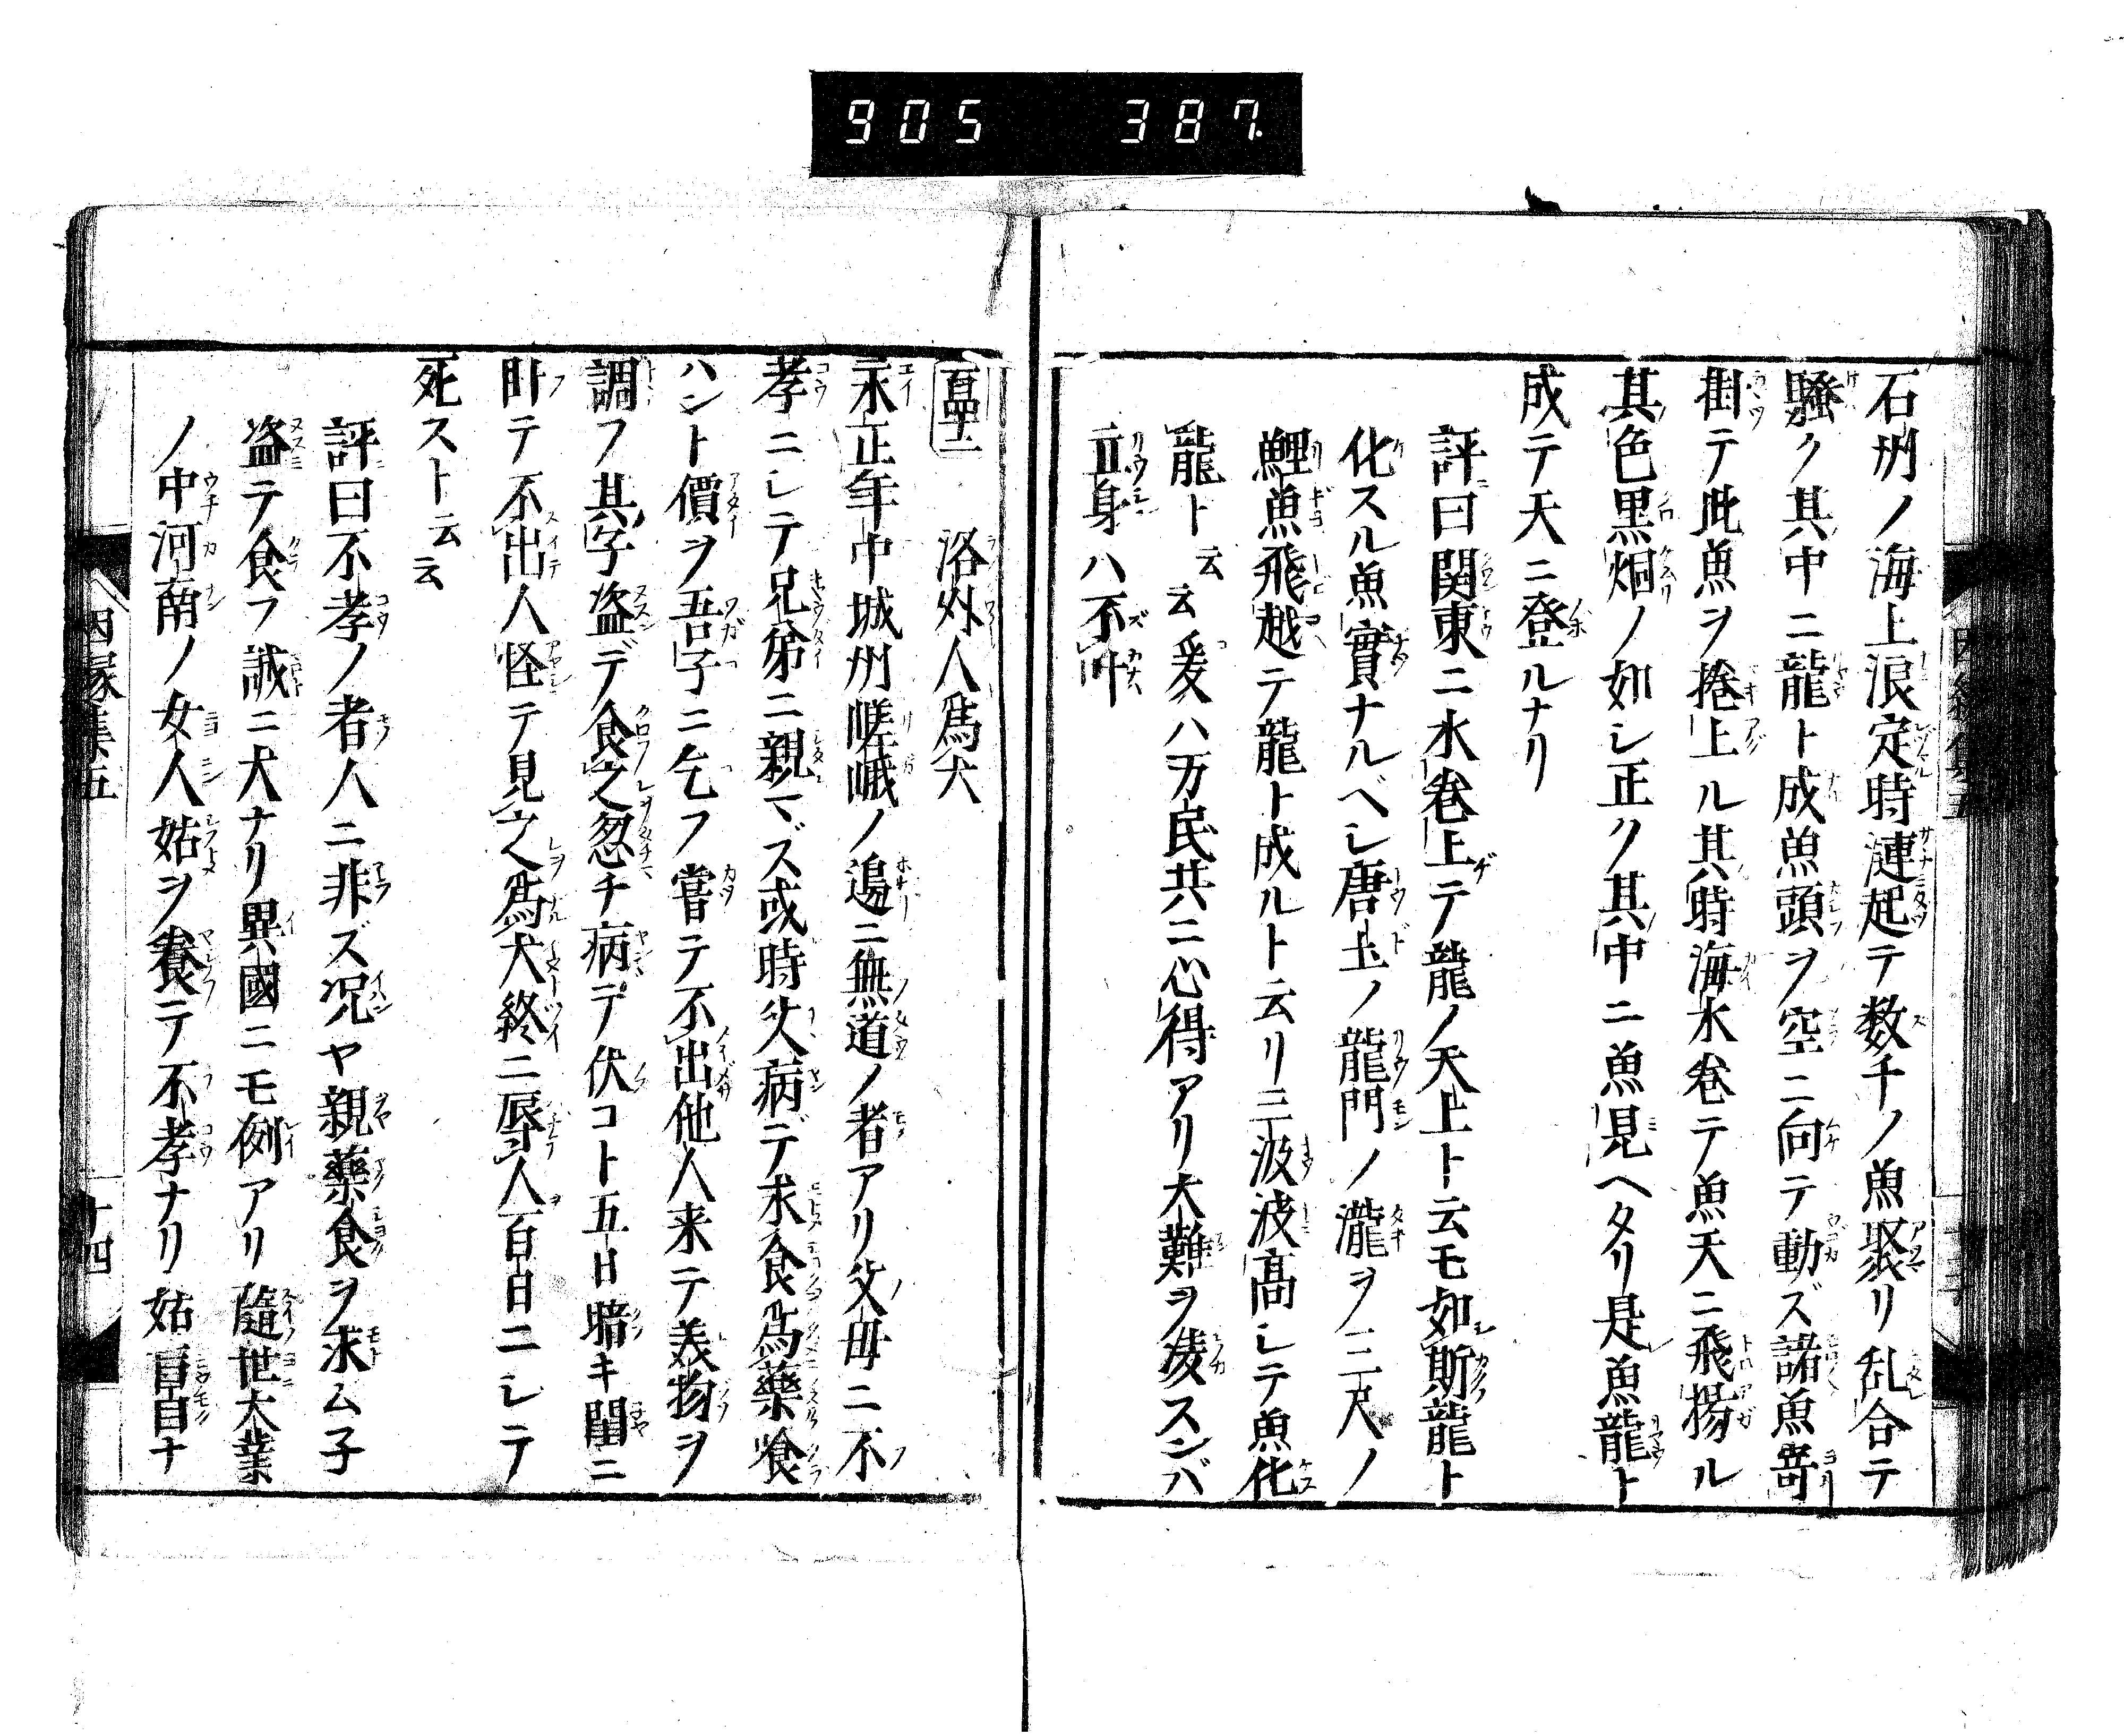 905 387
石州ノ海上浪定時漣起テ数千ノ魚聚リ乱合テ
騒ク其中ニ龍ト成魚頭ヲ空ニ向テ動ズ諸魚寄
掛テ此魚ヲ捲上ル其時海水巻テ魚天ニ飛揚ル
其色黒烟ノ如シ正ク其中ニ魚見ヘタリ是魚龍ト
成テ天ニ登ルナリ
評曰関東ニ水巻上テ龍ノ天上ト云モ如斯龍ト
化スル魚實ナルベシ唐土ノ龍門ノ瀧ヲ三尺ノ
鯉魚飛越テ龍ト成ルト云リ三汲波高シテ魚化
龍ト云云爰ハ万民共ニ心得アリ大難ヲ凌スンバ
立身ハ不叶
洛外人爲犬
永正年中城州嵯峨ノ邊ニ無道ノ者アリ父母ニ不
孝ニシテ兄弟ニ親マズ或時父病デ求食爲藥喰
ハント價ヲ吾子ニ乞フ嘗テ不出他人来テ美物ヲ
調フ其子盗デ食之忽チ病デ伏コト五日暗キ閨ニ
卧テ不出人怪テ見之爲犬終ニ辱人百日ニシテ
死スト云云
評曰不孝ノ者人ニ非ズ况ヤ親藥食ヲ求ム子
盗テ食フ誠ニ犬ナリ異國ニモ例アリ隨世大業
ノ中河南ノ女人姑ヲ養テ不孝ナリ姑盲目ナ
因縁集五
十四